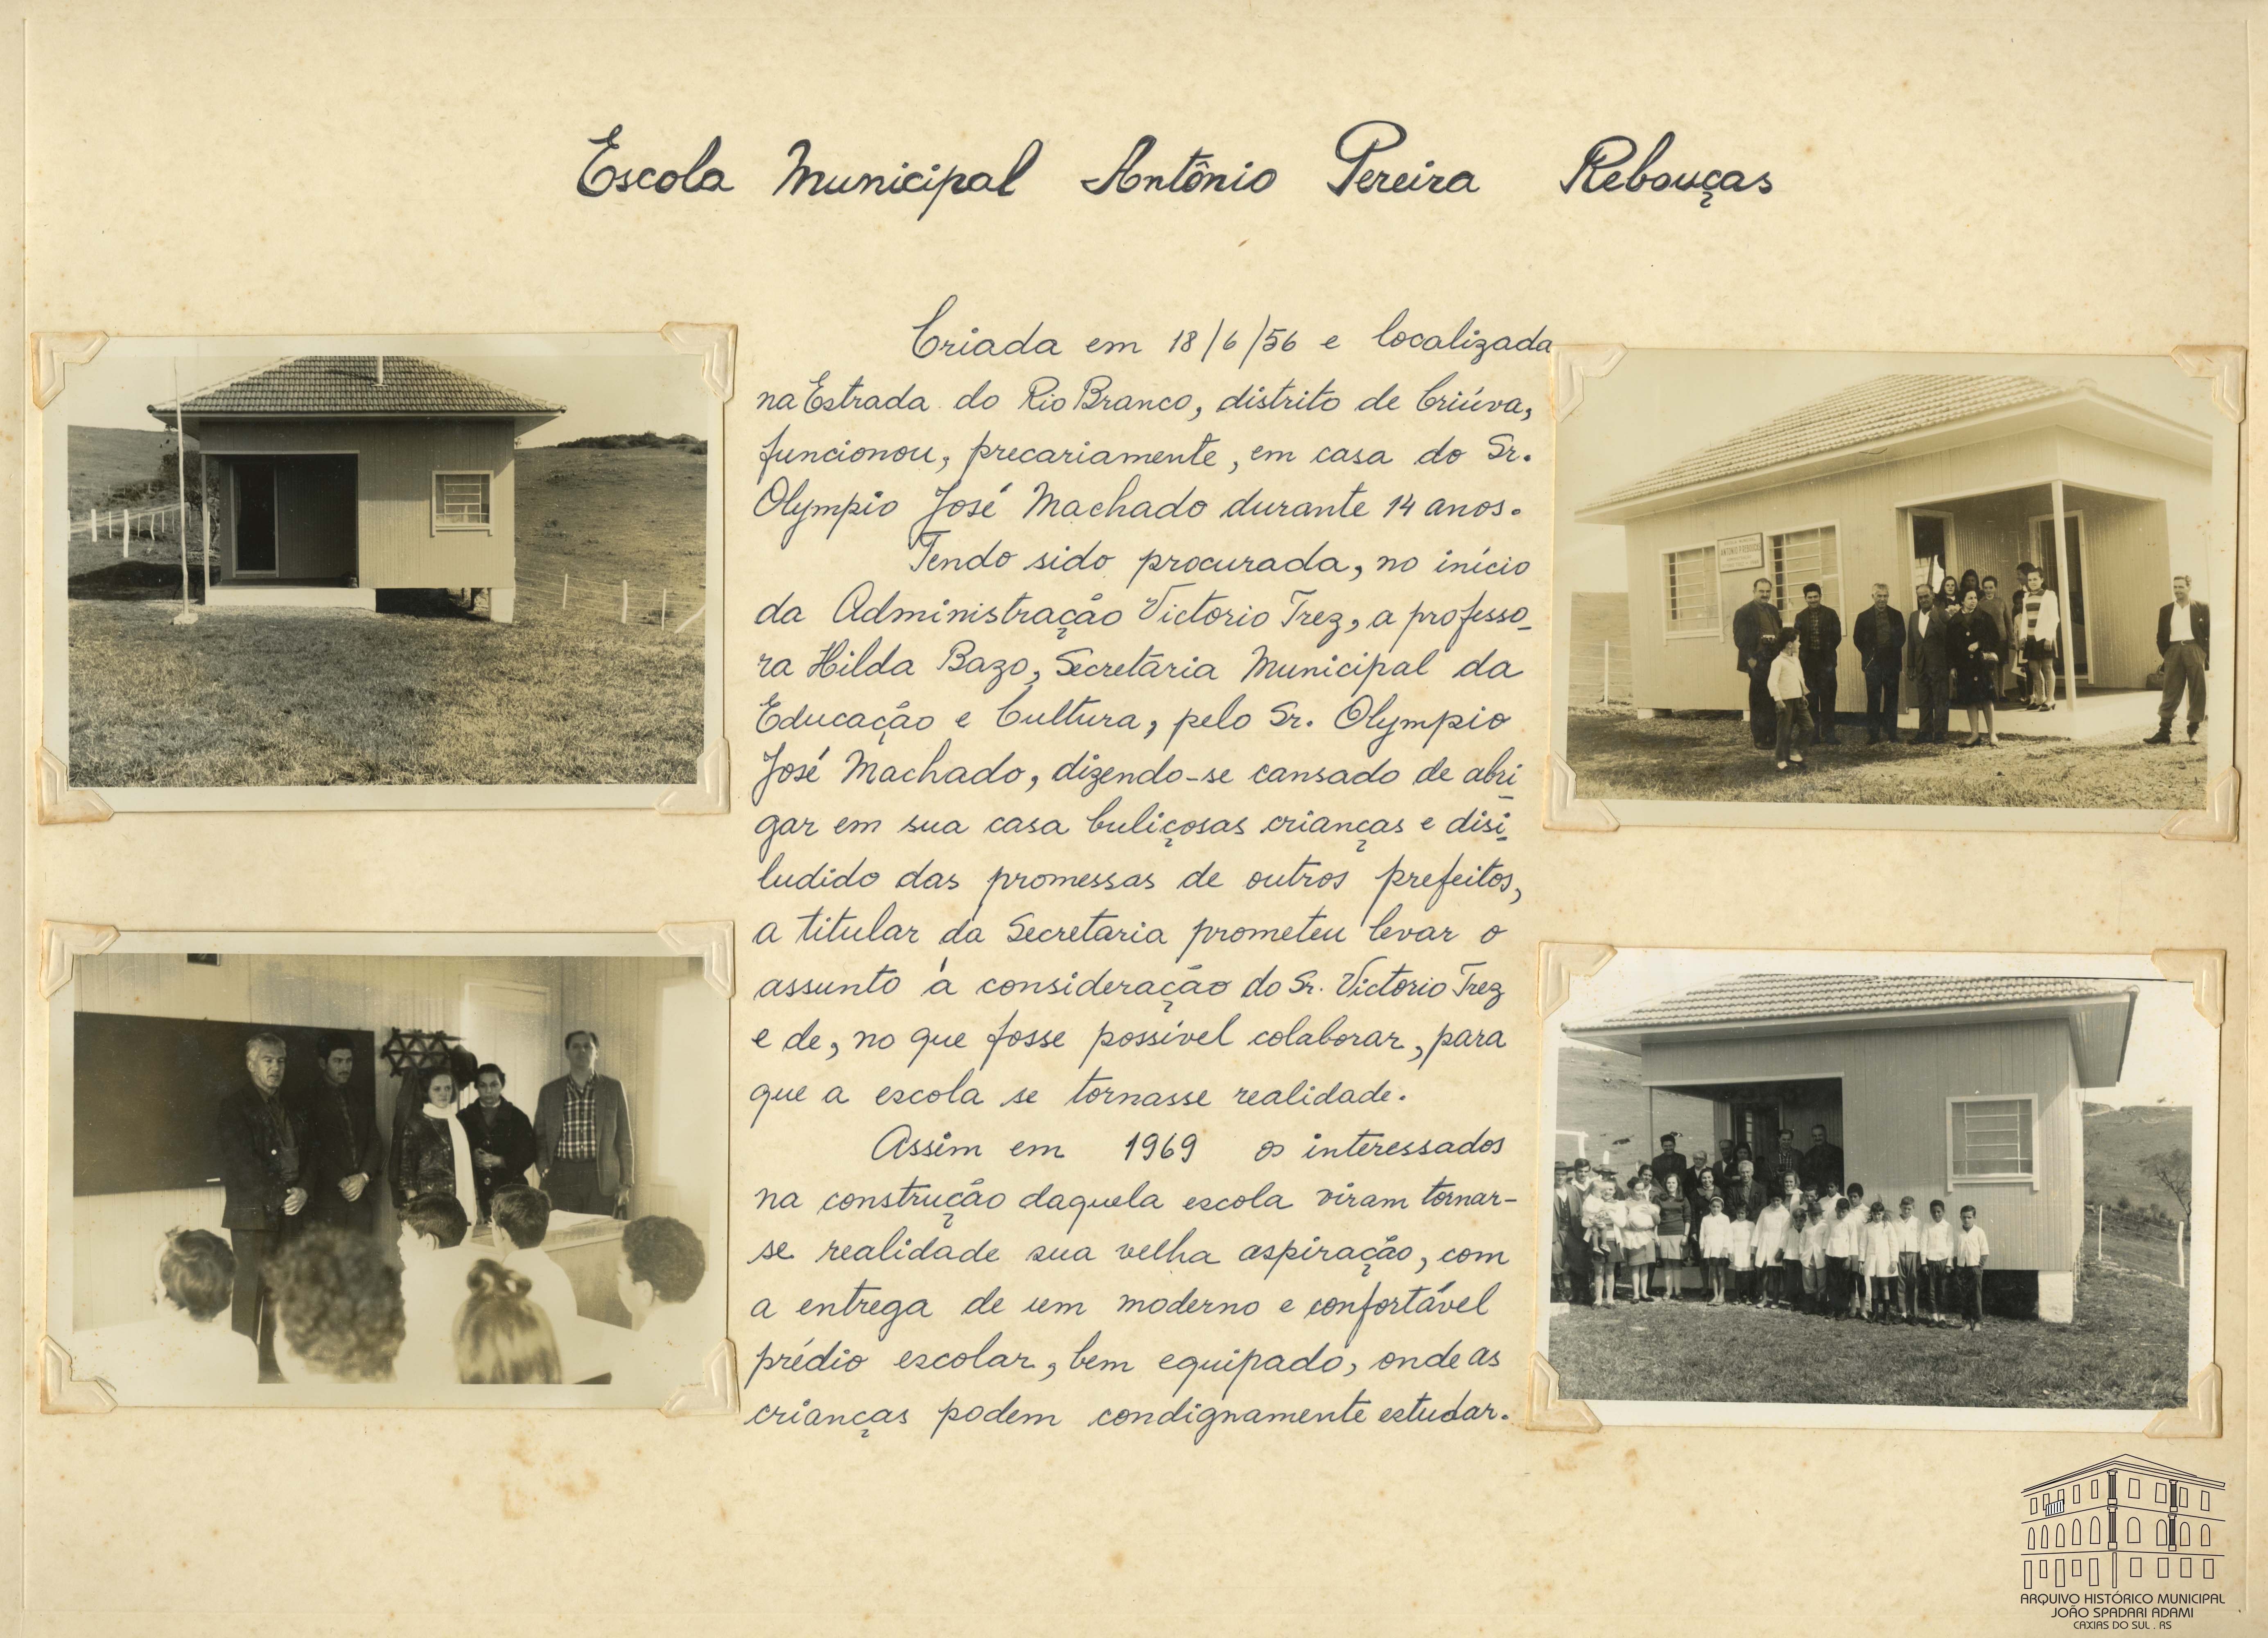 Escola Municipal Antônio Pereira Rebouças
Criada em 18/6/56 e localizada
na Estrada do Rio Branco, distrito de Criúva,
funcionou, precariamente, em casa do Sr.
Olympio José Machado durante 14 anos.
Tendo sido procurada, no início
da Administração Victorio Trez, a professo-
ra Hilda Bazo, Secretária Municipal da
Educação e Cultura, pelo Sr. Olympio
José Machado, dizendo-se cansado de abri
gar em sua casa buliçosas crianças e desi-
ludido das promessas de outros prefeitos,
a titular da Secretaria prometeu levar o
assunto à consideração do Sr. Victorio Trez
e de, no que fosse possível colaborar, para
que a escola se tornasse realidade.
Assim em 1969 os interessados
na construção daquela escola viram tornar-
se realidade sua velha aspiração, com
a entrega de um moderno e confortável
prédio escolar, bem equipado, onde as
crianças podem condignamente estudar.
ARQUIVO HISTÓRICO MUNICIPAL
JOÃO SPADARI ADAMI
CAXIAS DO SUL . RS